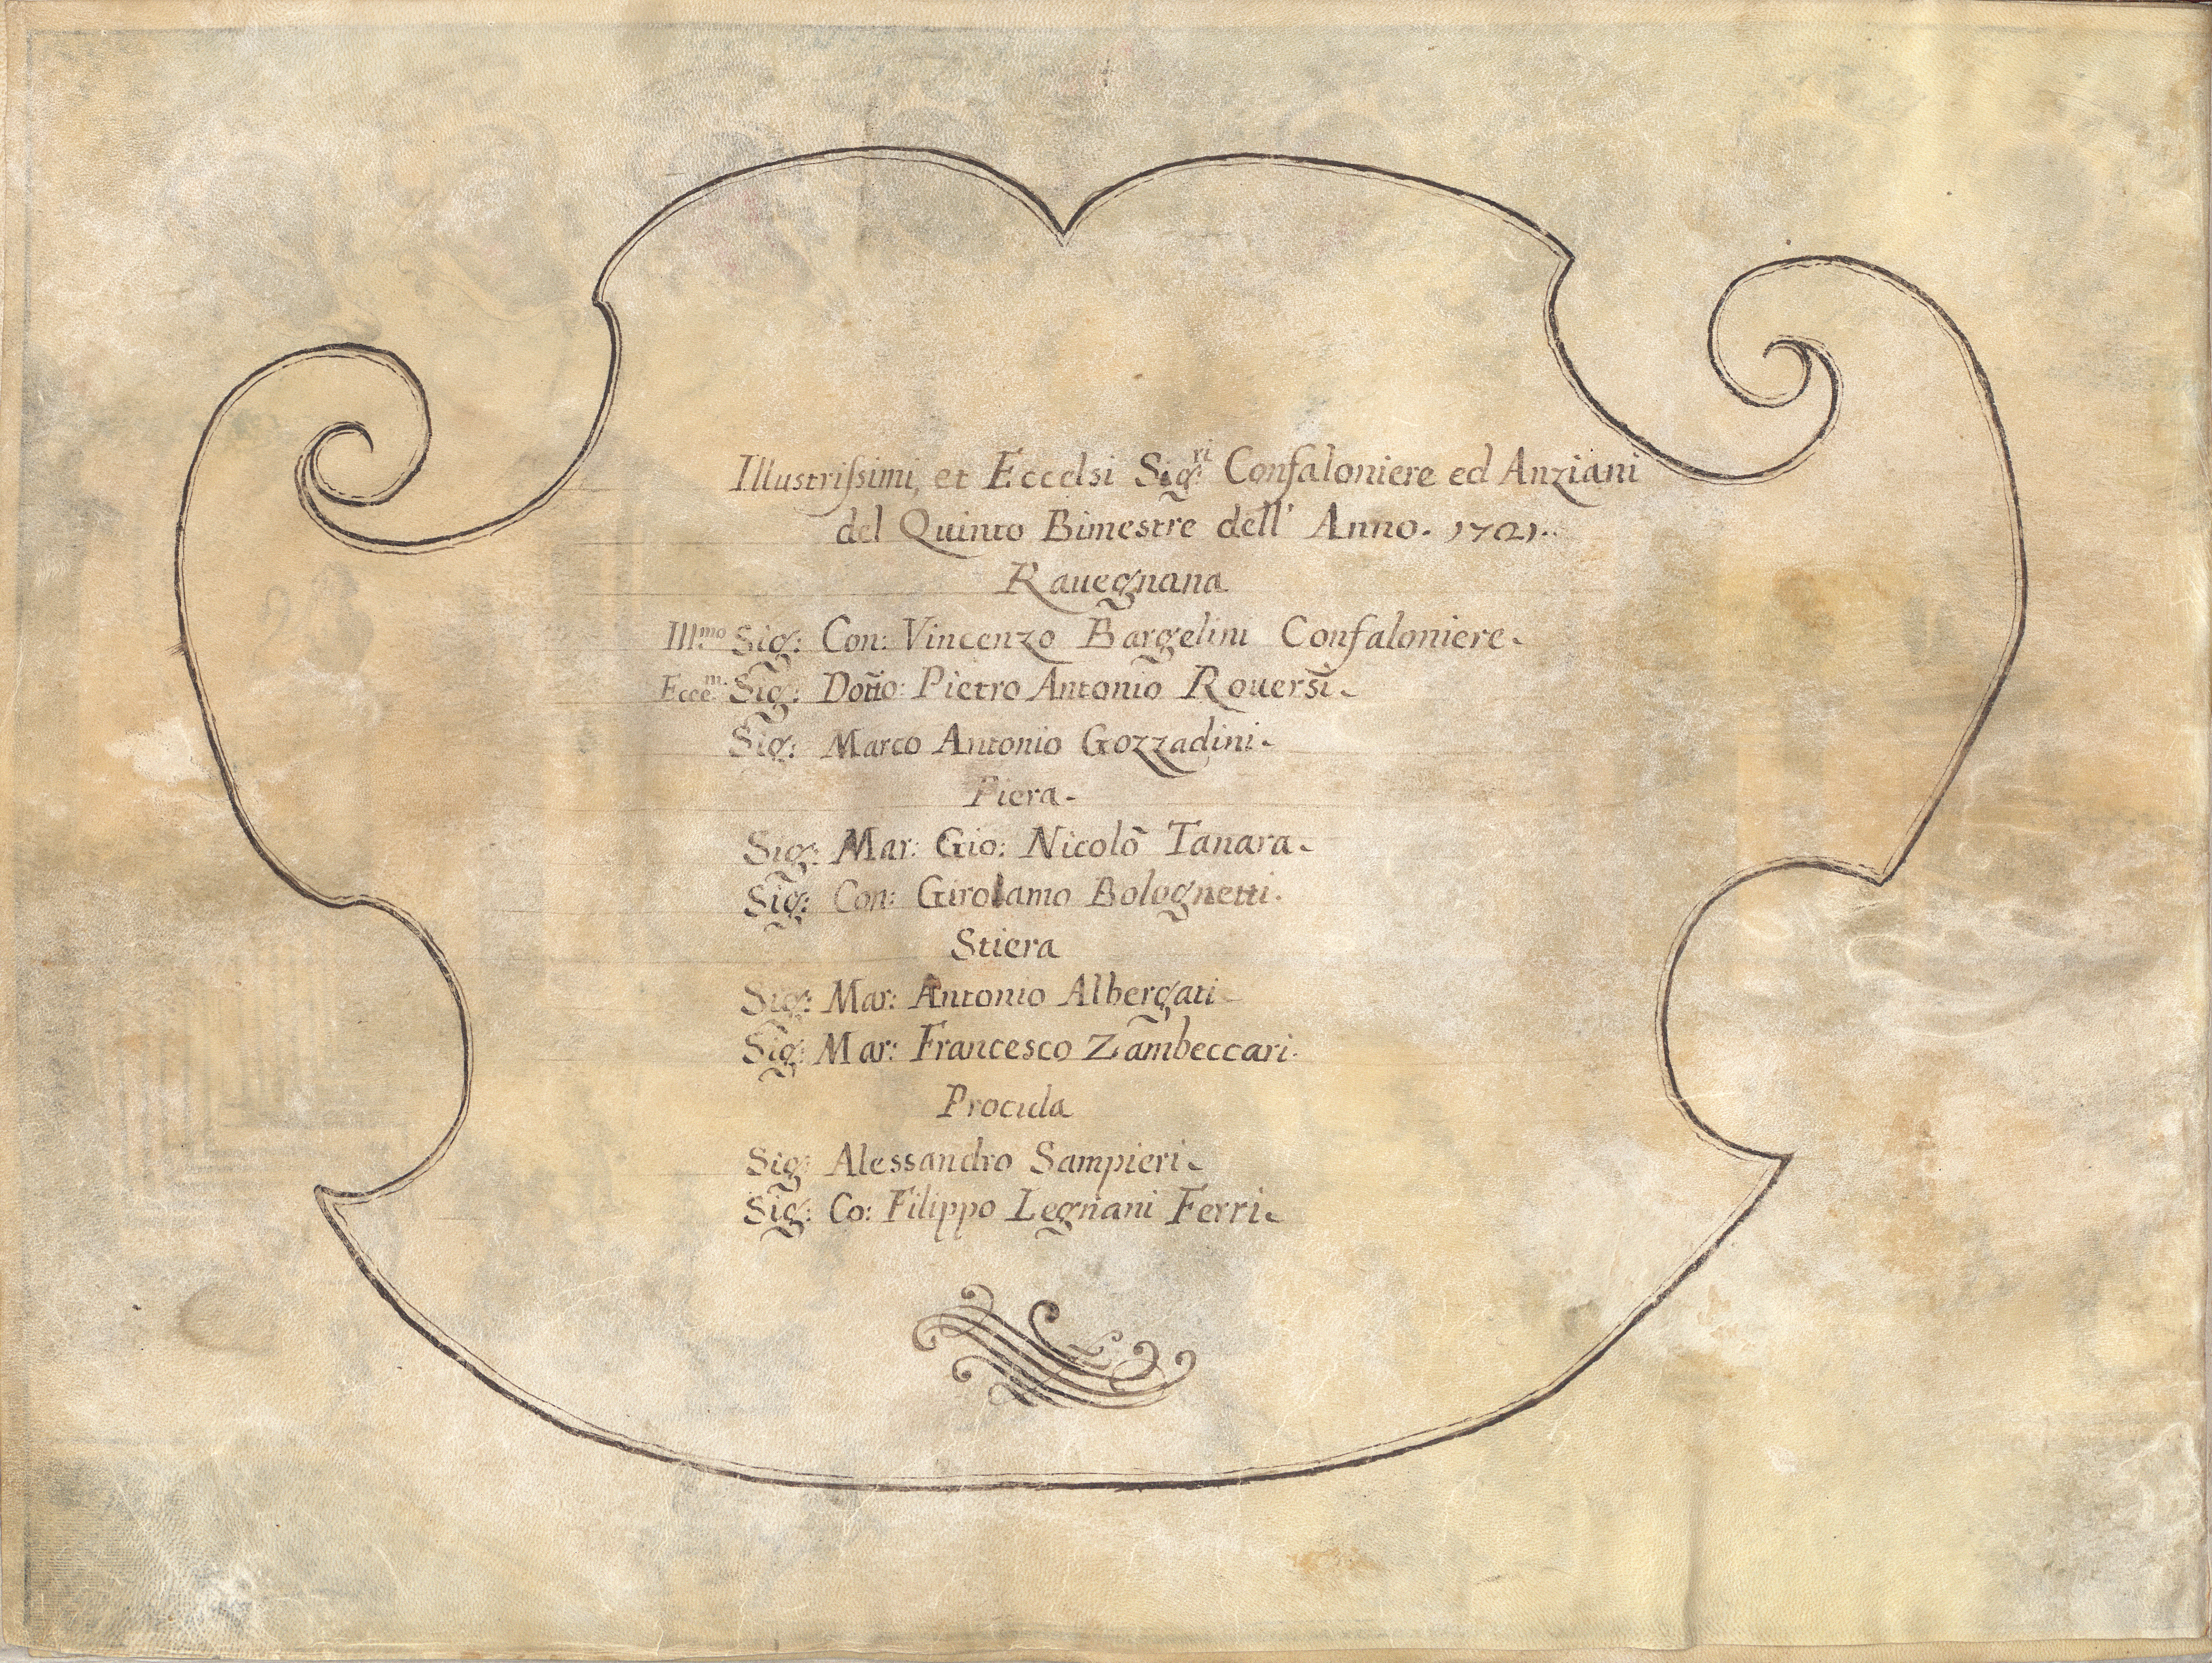 Illustrissimi, et Eccelsi Sig:ri Confaloniere ed Anziani
del Quinto Bimestre dell' Anno. 1721.
Rauegnana
Ill.mo Sig: Con: Vincenzo Bargelini Confaloniere.
Ecce.m Sig: Dott.o: Pietro Antonio Rouersi.
Sig: Marco Antonio Gozzadini.
Piera.
Sig: Mar: Gio: Nicolò Tanara.
Sig: Con: Girolamo Bolognetti.
Stiera
Sig: Mar: Antonio Albergati
Sig: Mar: Francesco Zambeccari.
Procula
Sig: Alessandro Sampieri.
Sig: Co: Filippo Legnani Ferri.